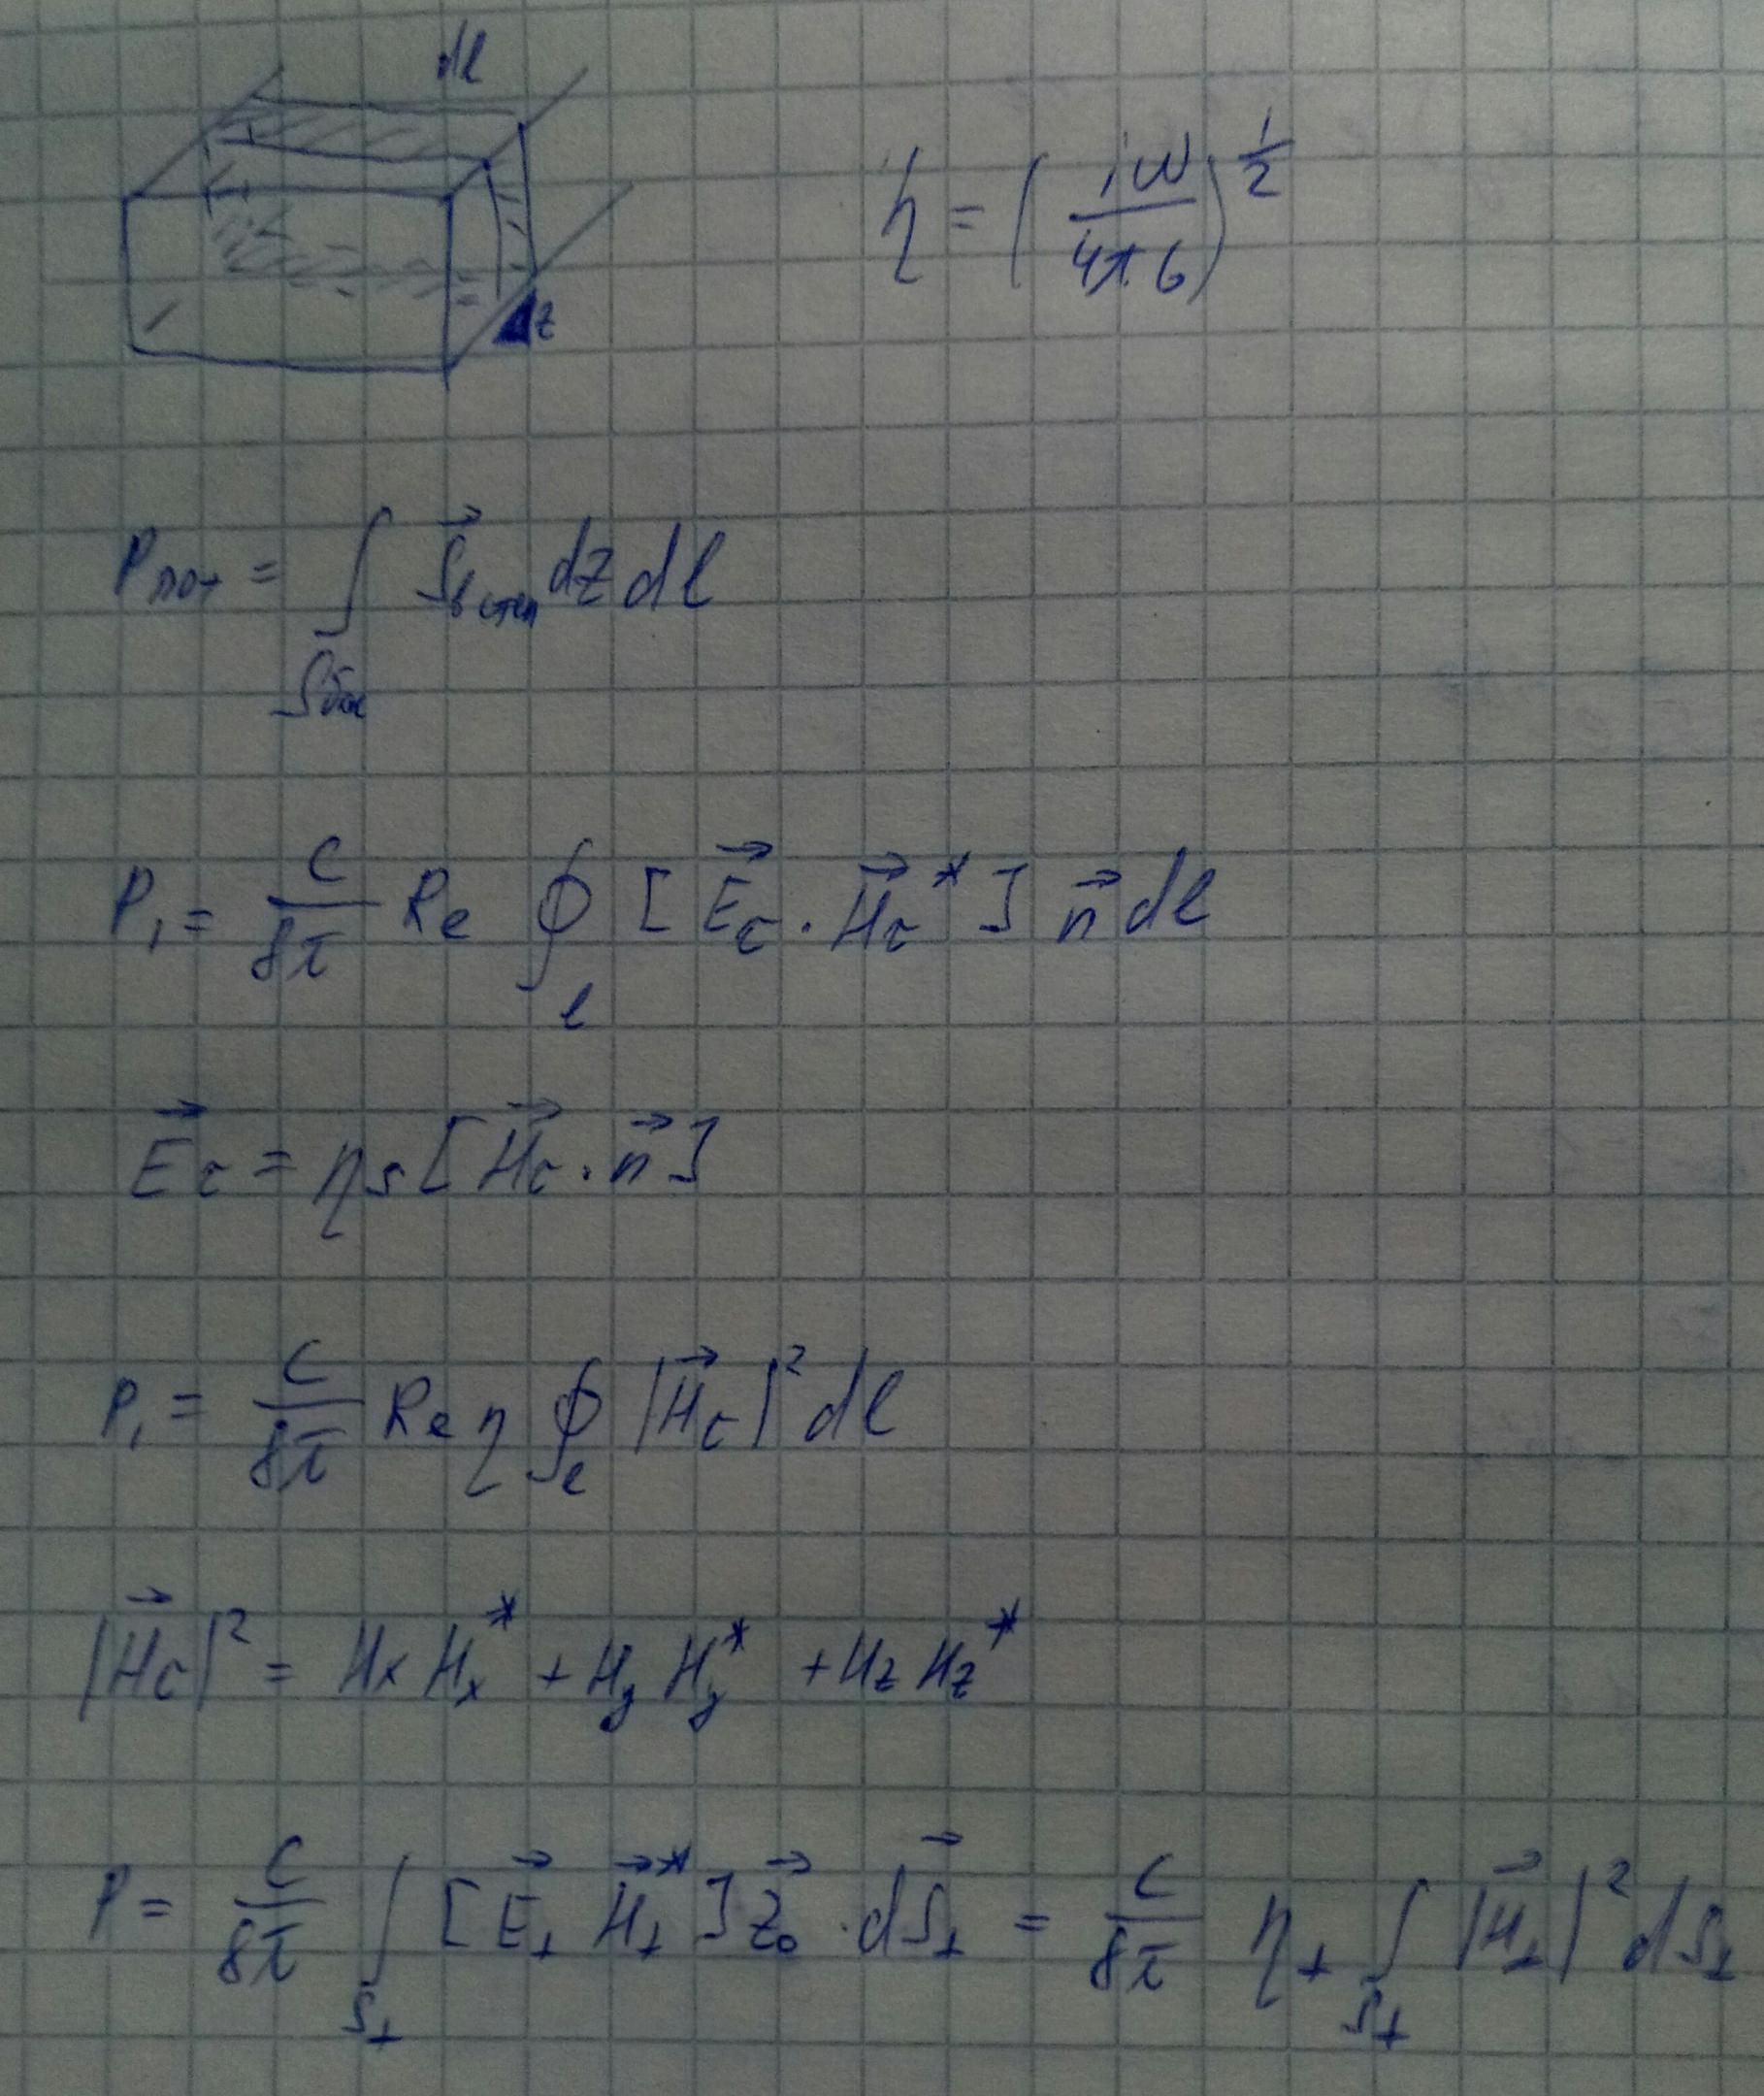 dl
η = (iω / 4πσ)^(1/2)
Δz
P_пот = ∫_(S_бок) S⃗_(в стен) dz dl
P₁ = c/8π Re ∮_l [E⃗_τ · H⃗_τ*] n⃗ dl
E⃗_τ = η_s [H⃗_τ · n⃗]
P₁ = c/8π Re η ∮_l |H⃗_τ|² dl
|H⃗_τ|² = H_x H_x* + H_y H_y* + H_z H_z*
P = c/8π ∫_(S_⊥) [E⃗_⊥ H⃗_⊥*] z⃗₀ · dS⃗_⊥ = c/8π η_⊥ ∫_(S_⊥) |H⃗_⊥|² dS_⊥